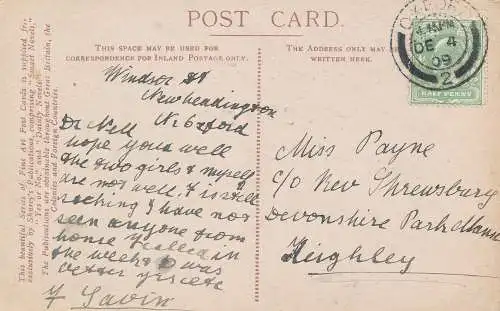 POST CARD.
THIS SPACE MAY BE USED FOR
CORRESPONDENCE FOR INLAND POSTAGE ONLY.
THE ADDRESS ONLY MAY
WRITTEN HERE.
OXFORD
DE 4
09
2
HALFPENNY
This beautiful Series of Fine Art Post Cards is supplied
exclusively by Shurey's Publications, comprising "Smart Novels,"
"Yes or No," and "Dainty Novels."
The Publications are obtainable throughout Great Britain, the
Colonies and Foreign Countries.
Windsor St
New headington
Nr Oxford
Dr Nell
hope you well
the two girls & myself
are not well. it is still
I have not
seen anyone from
home
the weeks was
better
Savin
Miss Payne
c/o New Shrewsbury
Devonshire Park House
Keighley